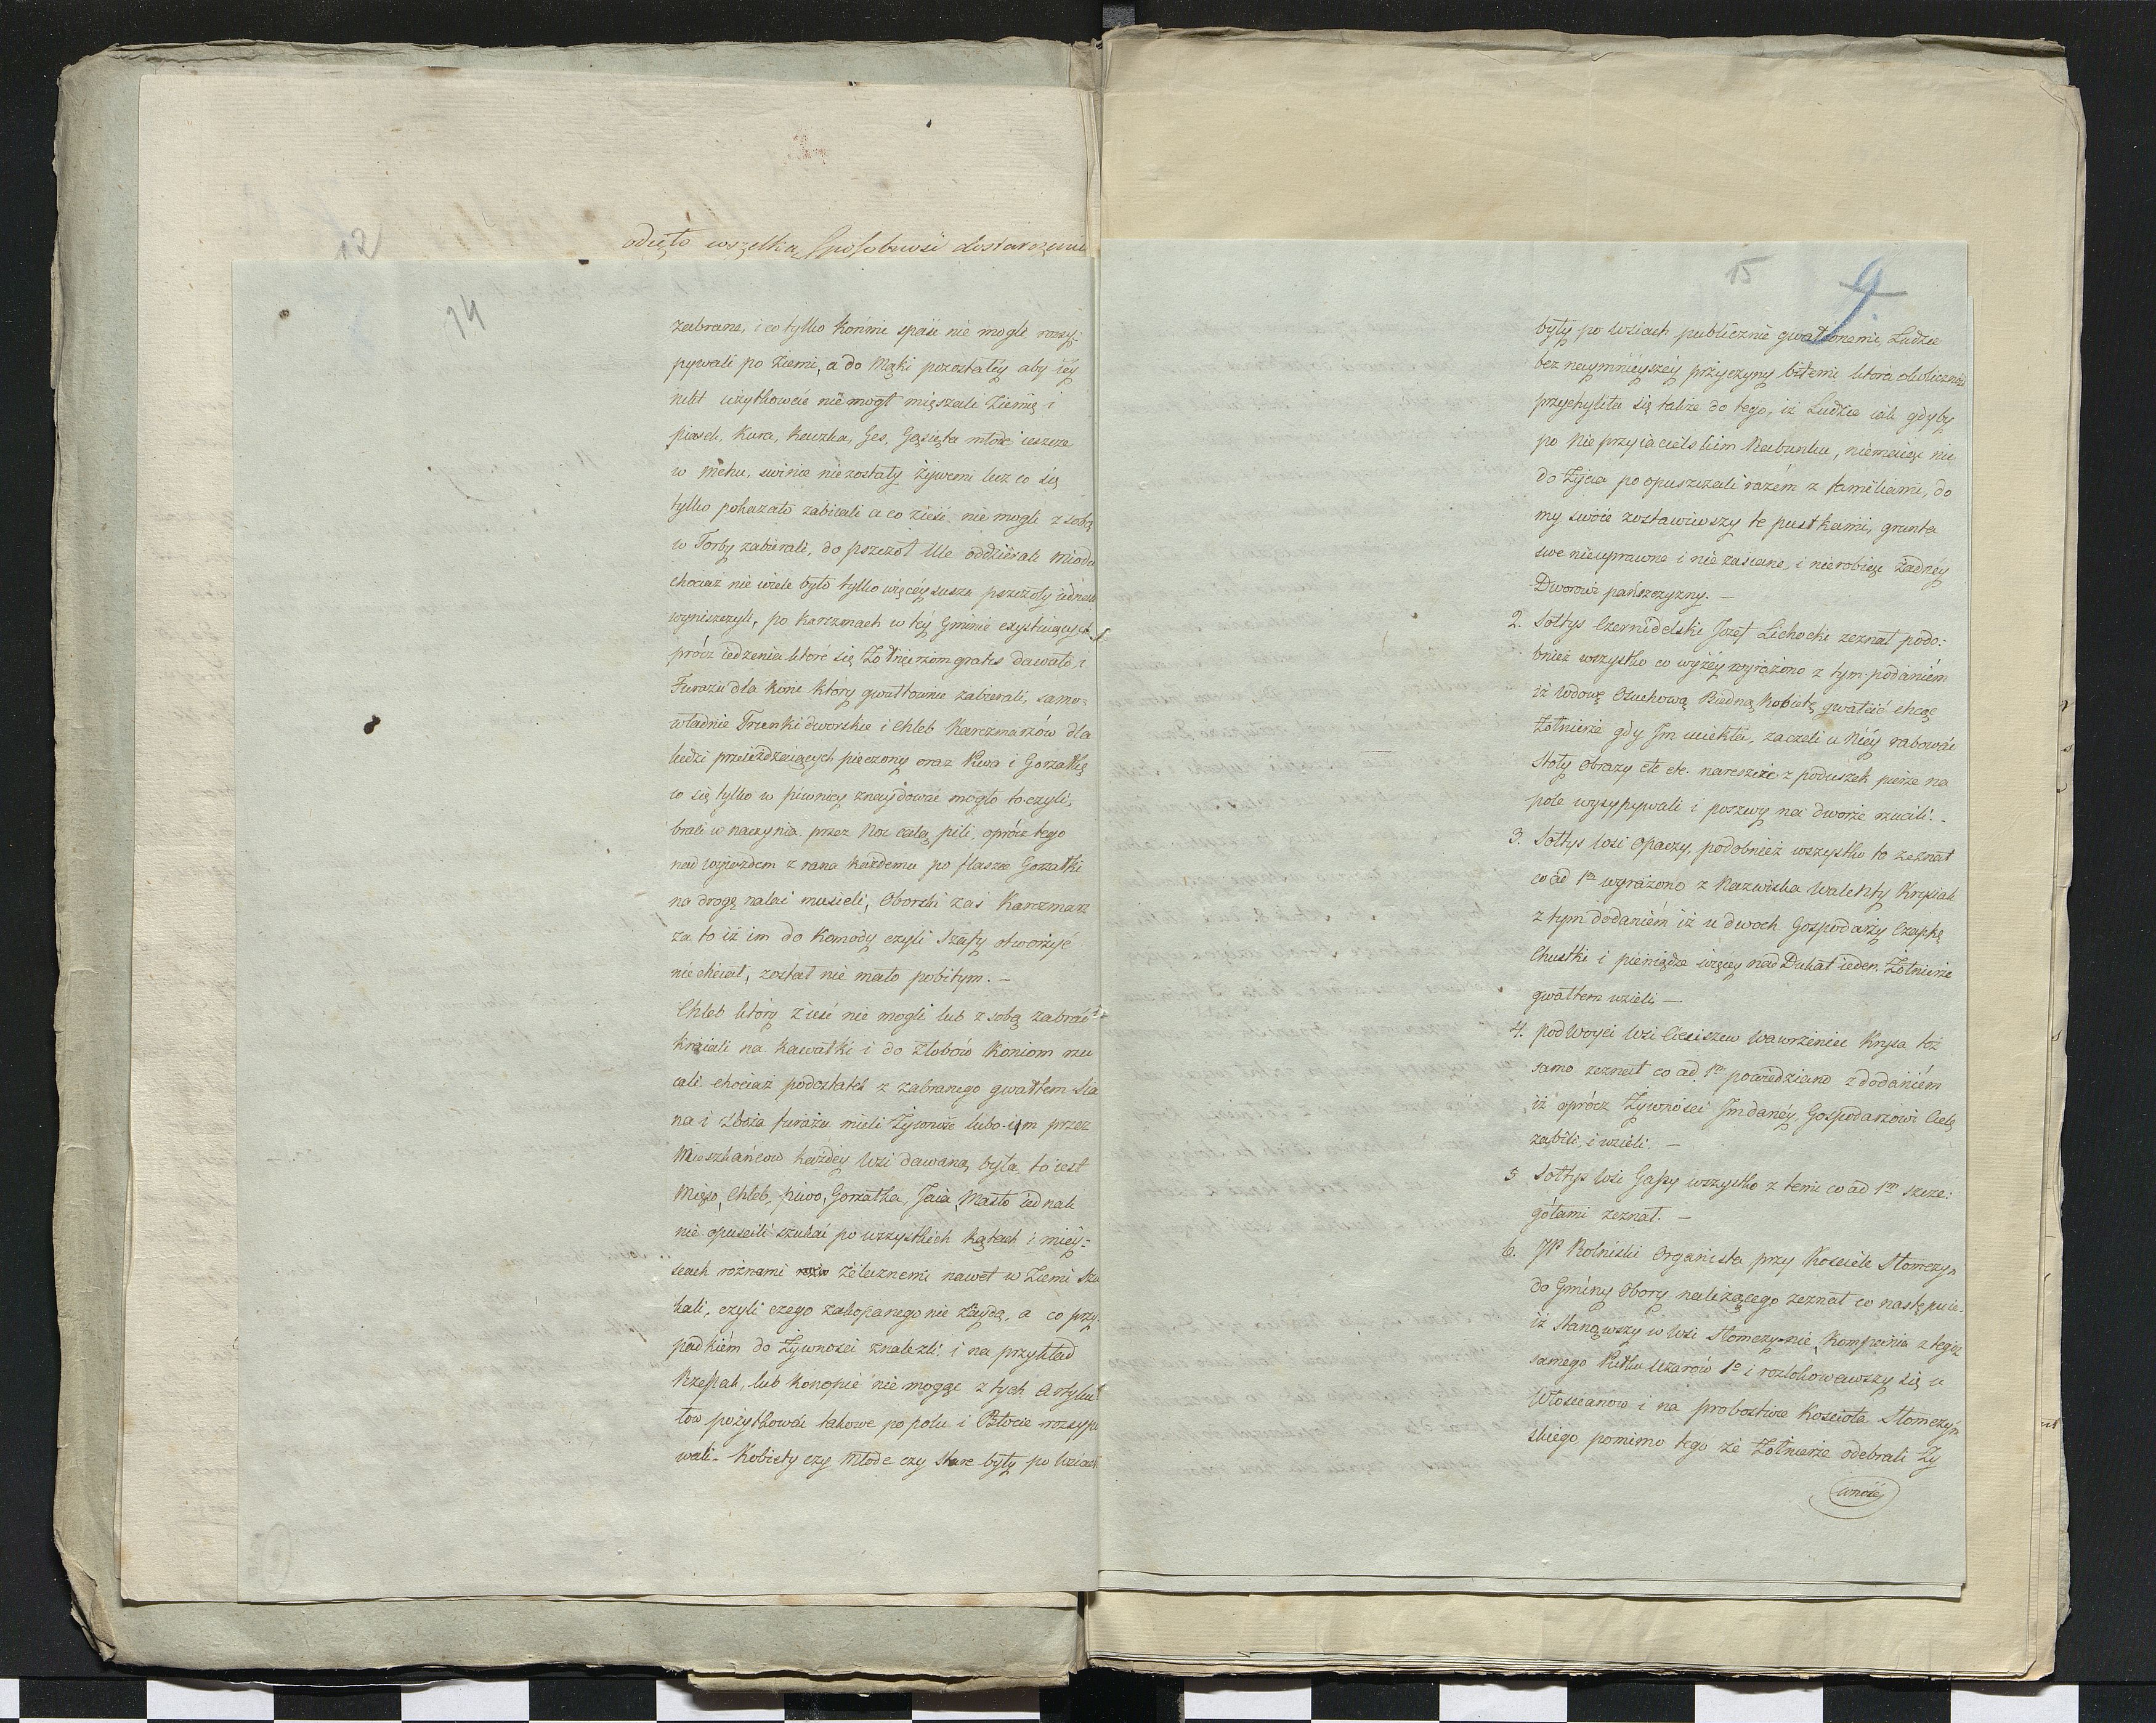 12
odięto wszelką sposobność dostarczenia
14
zabrane, i co tylko końmi spaść nie mogli rozsy:
pywali po Ziemi, a do Mąki pozostałéy aby iéy
nikt użytkować nie mógł mięszali Ziemię i
piasek, Kura, Kaczka, Gęs, Gąsięta młode ieszcze
w mchu, swinie nie zostały żywemi lecz co się
tylko pokazało zabiiali a co zieść nie mogli z sobą
w Torby zabierali, do pszczół Ule oddzierali Miodu
chociaż nie wiele było tylko więcéy susza pszczoły iednak
wyniszczyli, po karczmach w téy Gminie exystuiących
prócz iedzenia które się Żołnierzom gratis dawało, i
Furażu dla Koni który gwałtownie zabierali, samo=
władnie Trunki dworskie i Chleb Karczmarzów dla
ludzi przeieżdżaiących pieczony oraz Piwa i Gorzałkę
co się tylko w piwnicy znaydować mogło toczyli,
brali w naczynia przez Noc całą pili, oprócz tego
nad wyjazdem z rana każdemu po flaszce Gorzałki
na drogę nalać musieli, Oborski zaś Karczmarz
za to iż im do Komody czyli Szafy otworzyć
nie chciał, został nie mało pobitym. —
Chleb który zieść nie mogli lub z sobą zabrać
kraiali na kawałki i do żłobów Koniom rzu
cali chociaż podostatek z zabranego gwałtem Sia
na i Zboża furażu mieli Żywność lubo im przez
Mieszkańców każdey Wsi dawaną była, to iest
Mięso, Chleb, piwo, Gorzałka, Jaia, Masło iednak
nie opuścili szukać po wszystkich kątach i miéy=
scach rożnami żelaznemi nawet w Ziemi szu
kali, czyli czego zakopanego nie znaydą, a co przy
padkiém do Żywności znalezli i na przykład
Rzepak, lub Konopie nie mogąc z tych Artyku
łów pożytkować takowe po polu i Błocie rozsypy
wali. Kobiety czy Młode czy Stare były po Wsiach
15
9.
były po Wsiach publicznie gwałconemi, Ludzie
bez naymnieyszéy przyczyny bitemi która okoliczność
przychyliła się także do tego, iż Ludzie iak gdyby
po Nieprzyiacielskim Rabunku, niemaiąc nic
do Życia poopuszczali razém z familiami, do
my swoie zostawiwszy te pustkami, grunta
swe nieuprawne i nie zasiane, i nierobiąc żadnéy
Dworowi pańszczyzny. —
2. Sołtys Czernidelski Jozef Lichocki zeznał podo:
bnież wszystko co wyżéy wyrażono z tym podaniém
iż Wdowę Osuchową Biedną Kobietę gwałcić chcąc
Żołnierze gdy Im uciekła, zaczeli u Niéy rabować
Stoły Obrazy etc etc. nareszcie z poduszek pierze na
pole wysypywali i poszwy na dworze rzucili. -
3. Sołtys Wsi Opaczy, podobnież wszystko to zeznał
co ad 1m wyrażono z Nazwiska Walenty Krysiak
z tym dodaniém iż u dwoch Gospodarzy Czapkę
Chustki i pieniądze więcey nad Dukat ieden Żołnierze
gwałtem wzieli —
4. podWoyci Wsi Cieciszew Wawrzeniec Krysa toż
samo zeznał co ad 1m powiedziano z dodaniém
iż oprócz Żywności Imdanéy Gospodarzowi Cielę
zabili, i wzieli. —
5 Sołtys Wsi Gassy wszystko z temi co ad 1m szcze:
gółami zeznał. —
6. JP Rolniski Organista przy Kosciele Słomczyn
do Gminy Obory należącego zeznał co następuie.
iż Stanąwszy w Wsi Słomczynie, Kompania z tegoż
samego Pułku Uzarów 1o i rozlokowawszy się u
Włościanów i na probostwie Kościoła Słomczyń
skiego pomimo tego że Żołnierze odebrali Ży
wność